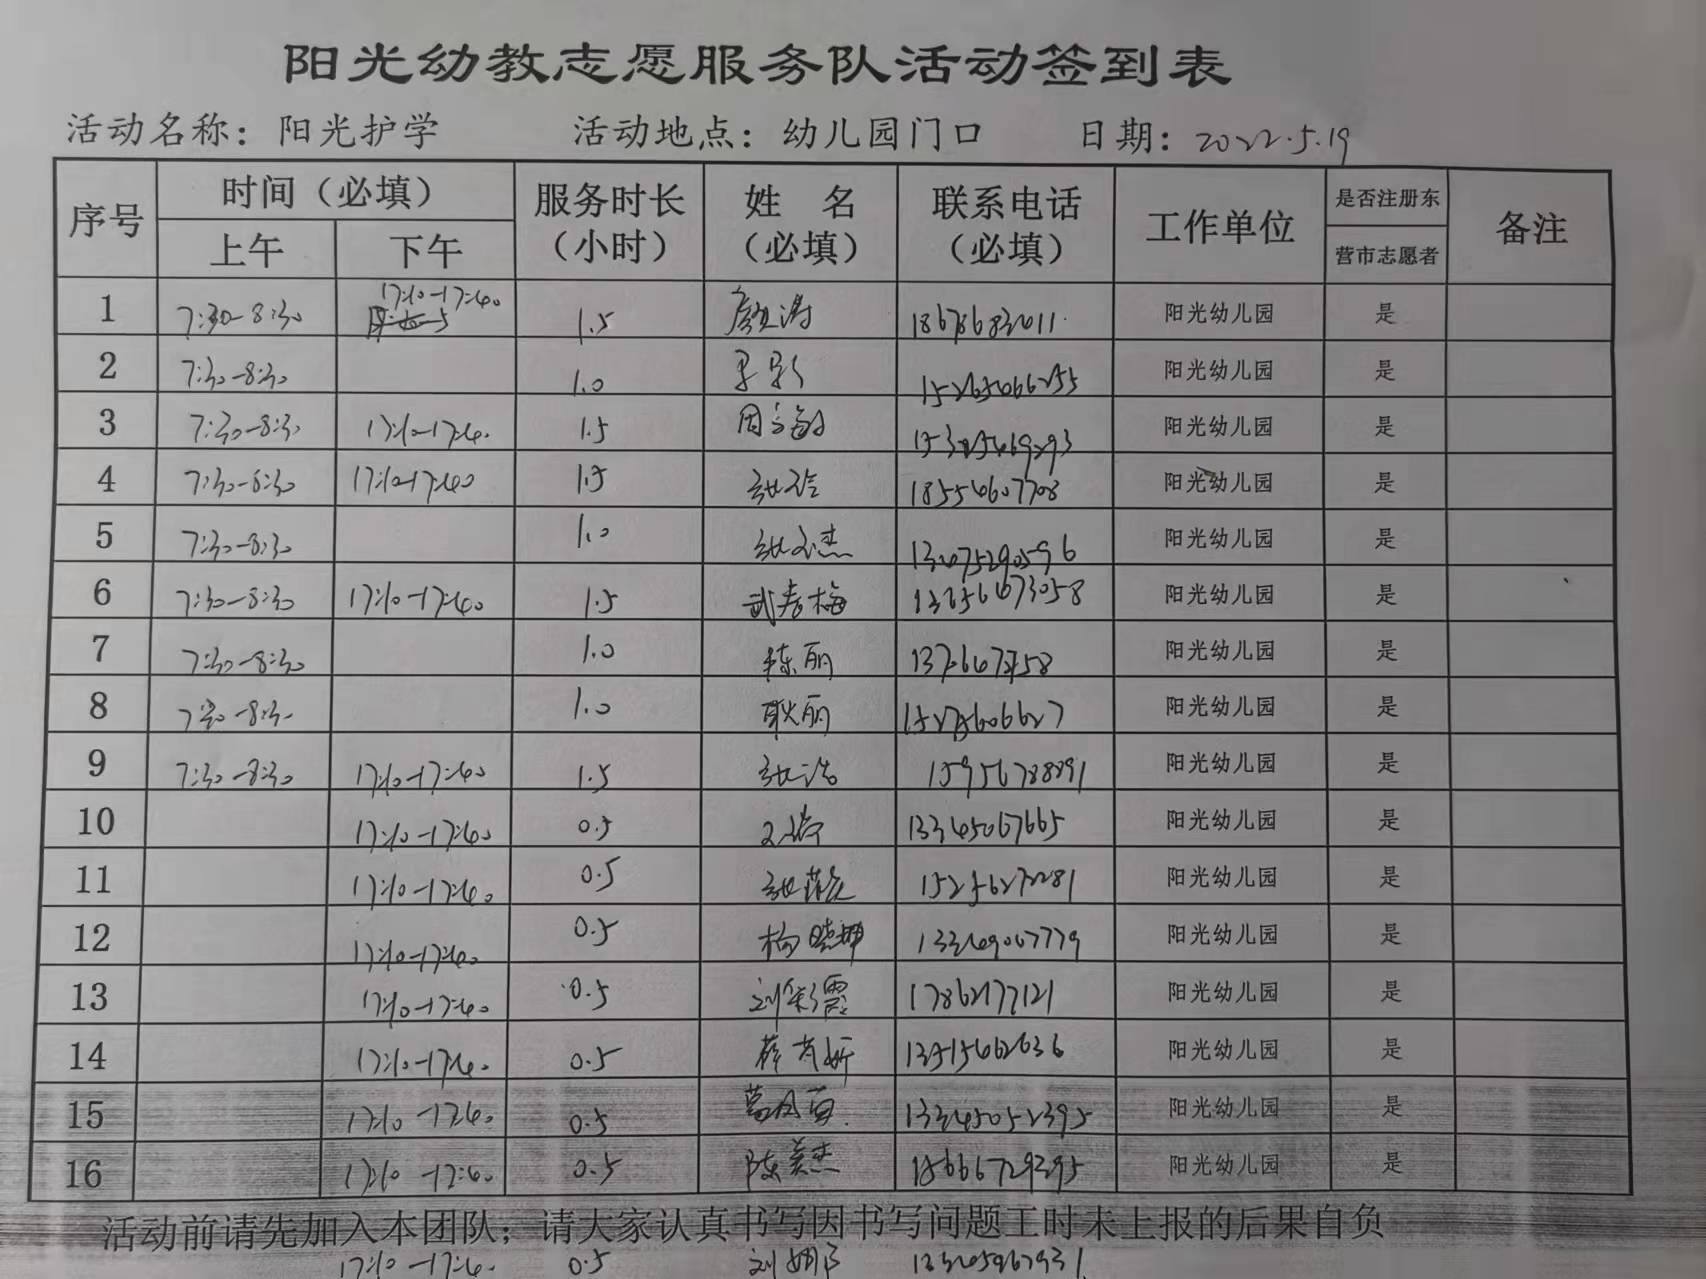 阳光幼教志愿服务队活动签到表
活动名称：阳光护学 活动地点：幼儿园门口 日期：2022.5.19
序号 时间（必填） 服务时长（小时） 姓 名（必填） 联系电话（必填） 工作单位 是否注册东营市志愿者 备注
上午 下午
1 7:30-8:30 17:10-17:40 1.5 18678683011 阳光幼儿园 是
2 7:30-8:30 1.0 15265066255 阳光幼儿园 是
3 7:30-8:30 17:10-17:40 1.5 阳光幼儿园 是
4 7:30-8:30 17:10-17:40 1.5 18554607708 阳光幼儿园 是
5 7:30-8:30 1.0 张文杰 阳光幼儿园 是
6 7:30-8:30 17:10-17:40 1.5 武春梅 阳光幼儿园 是
7 7:30-8:30 1.0 陈丽 阳光幼儿园 是
8 7:30-8:30 1.0 耿丽 阳光幼儿园 是
9 7:30-8:30 17:10-17:40 1.5 张洁 阳光幼儿园 是
10 17:10-17:40 0.5 13345067665 阳光幼儿园 是
11 17:10-17:40 0.5 阳光幼儿园 是
12 17:10-17:40 0.5 杨晓坤 阳光幼儿园 是
13 17:10-17:40 0.5 刘彩霞 17862177121 阳光幼儿园 是
14 17:10-17:40 0.5 阳光幼儿园 是
15 17:10-17:40 0.5 13345052395 阳光幼儿园 是
16 17:10-17:40 0.5 陈美杰 阳光幼儿园 是
活动前请先加入本团队；请大家认真书写因书写问题工时未上报的后果自负
17:10-17:40 0.5 刘娜